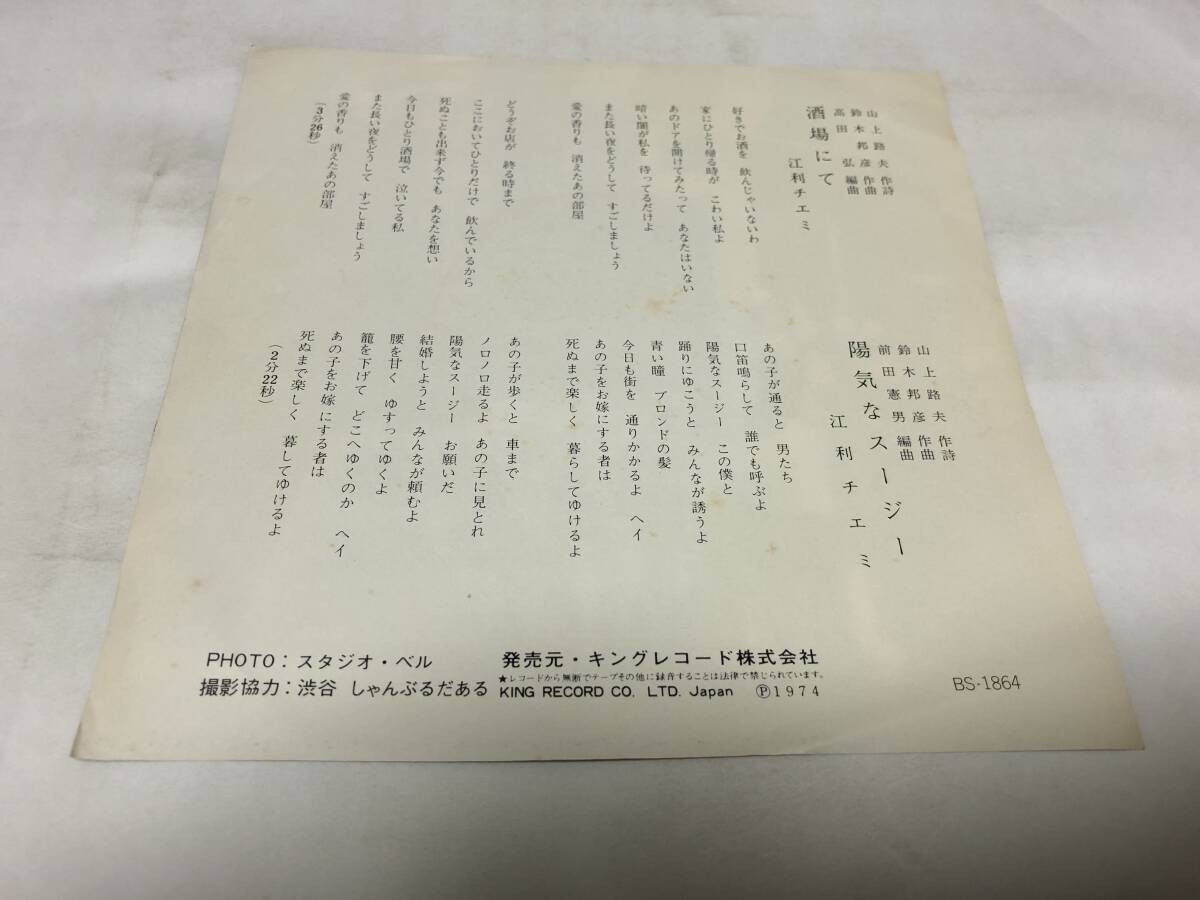 山上路夫 作詩
鈴木邦彦 作曲
高田 弘 編曲
酒場にて
江利チエミ
好きでお酒を 飲んじゃいないわ
家にひとり帰る時が こわい私よ
あのドアを開けてみたって あなたはいない
暗い闇が私を 待ってるだけよ
また長い夜をどうして すごしましょう
愛の香りも 消えたあの部屋
どうぞお店が 終る時まで
ここにおいてひとりだけで 飲んでいるから
死ぬことも出来ず今でも あなたを想い
今日もひとり酒場で 泣いてる私
また長い夜をどうして すごしましょう
愛の香りも 消えたあの部屋
(3分26秒)
山上路夫 作詩
鈴木邦彦 作曲
前田憲男 編曲
陽気なスージー
江利チエミ
あの子が通ると 男たち
口笛鳴らして 誰でも呼ぶよ
陽気なスージー この僕と
踊りにゆこうと みんなが誘うよ
青い瞳 ブロンドの髪
今日も街を 通りかかるよ ヘイ
あの子をお嫁にする者は
死ぬまで楽しく 暮らしてゆけるよ
あの子が歩くと 車まで
ノロノロ走るよ あの子に見とれ
陽気なスージー お願いだ
結婚しようと みんなが頼むよ
腰を甘く ゆすってゆくよ
籠を下げて どこへゆくのか ヘイ
あの子をお嫁にする者は
死ぬまで楽しく 暮してゆけるよ
(2分22秒)
PHOTO：スタジオ・ベル
撮影協力：渋谷 しゃんぶるだある
発売元・キングレコード株式会社
★レコードから無断でテープその他に録音することは法律で禁じられています。
KING RECORD CO. LTD. Japan Ⓟ1974
BS-1864